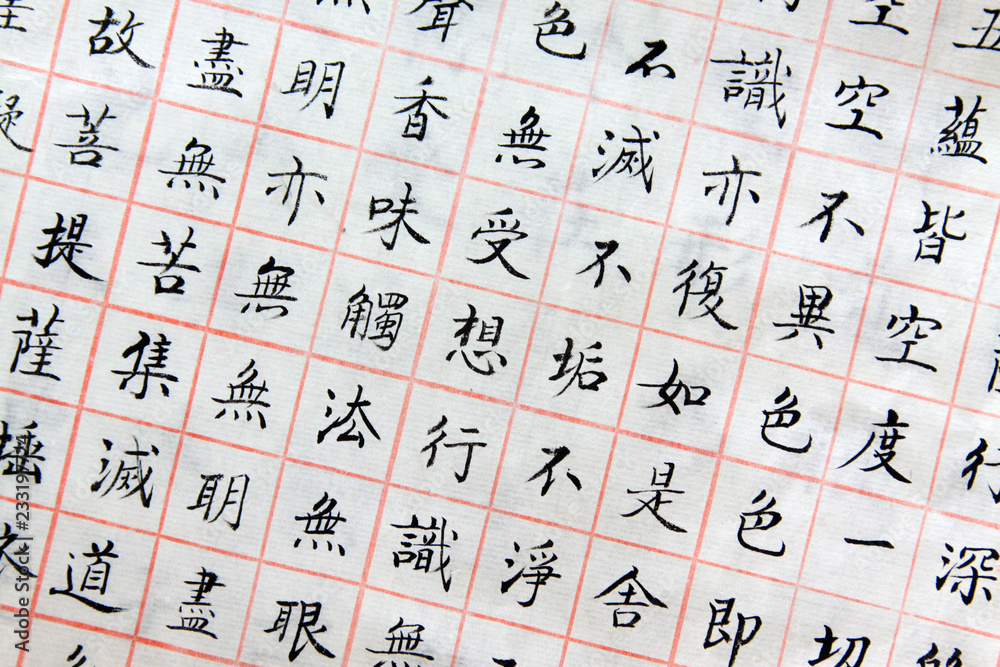 行深
五蘊皆空度一切
空空不異色色即
識亦復如是舍
不滅不垢不淨
色無受想行識無
聲香味觸法無眼
無明亦無無明盡
盡無苦集滅道
故菩提薩埵
Adobe Stock